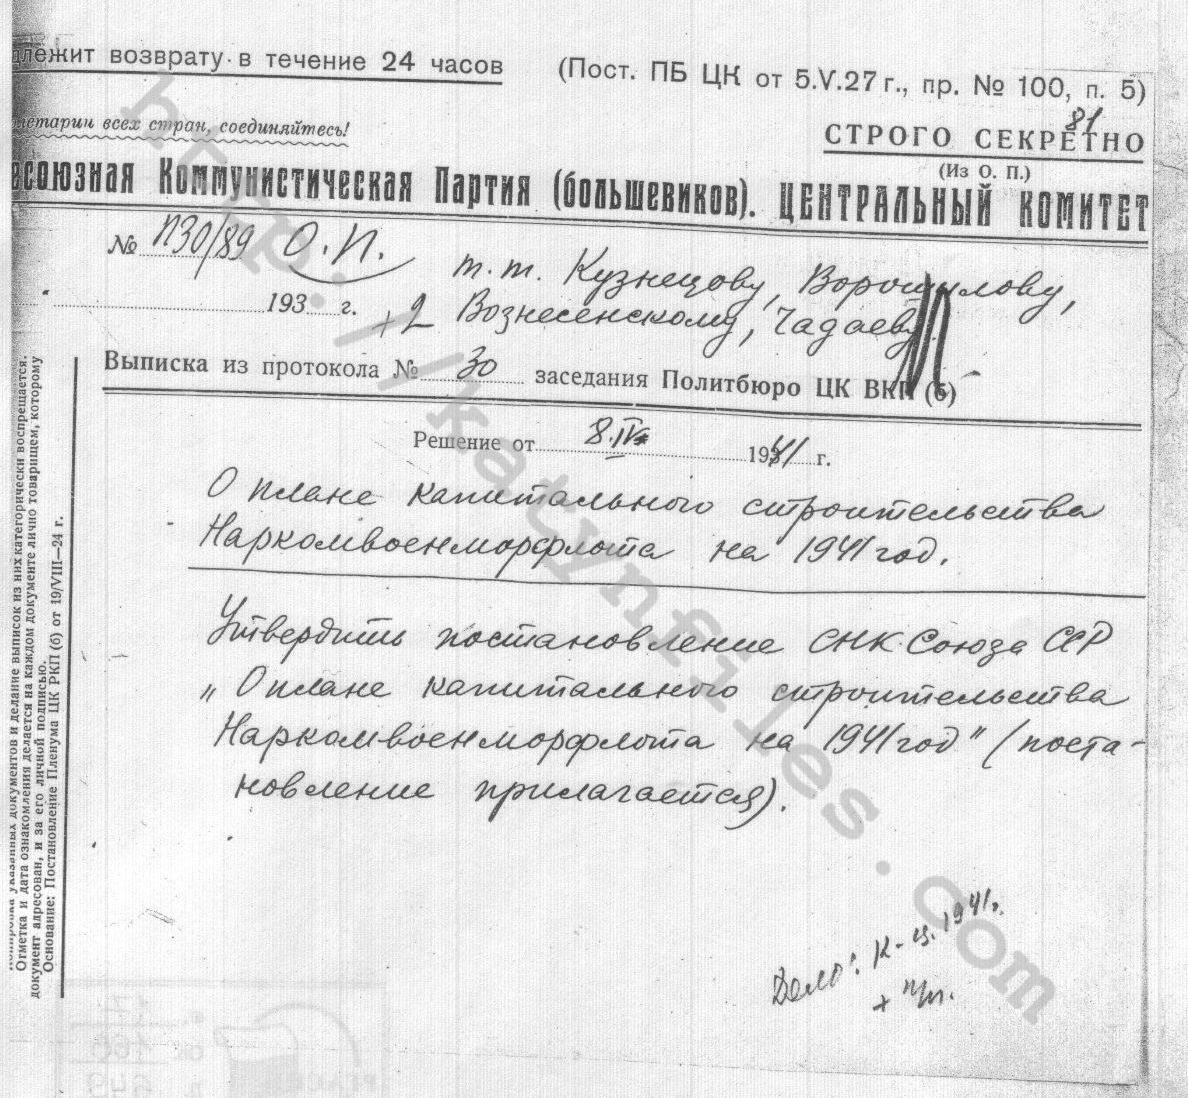 лежит возврату в течение 24 часов (Пост. ПБ ЦК от 5.V.27 г., пр. № 100, п. 5)
81
летарии всех стран, соединяйтесь!
СТРОГО СЕКРЕТНО
(Из О. П.)
есоюзная Коммунистическая Партия (большевиков). ЦЕНТРАЛЬНЫЙ КОМИТЕТ
№ П30/89 О.П.
т.т. Кузнецову, Ворошилову,
193 г. +2 Вознесенскому, Чадаеву
Выписка из протокола № 30 заседания Политбюро ЦК ВКП (б)
Решение от 8.IV 1941 г.
О плане капитального строительства
Наркомвоенморфлота на 1941 год.
Утвердить постановление СНК Союза ССР
„О плане капитального строительства
Наркомвоенморфлота на 1941 год" (поста-
новление прилагается).
Дело: К-ц. 1941г.
+
указанных документов и делание выписок из них категорически воспрещается.
Отметка и дата ознакомления делается на каждом документе лично товарищем, которому
документ адресован, и за его личной подписью.
Основание: Постановление Пленума ЦК РКП(б) от 19/VIII—24 г.
http://katynfiles.com